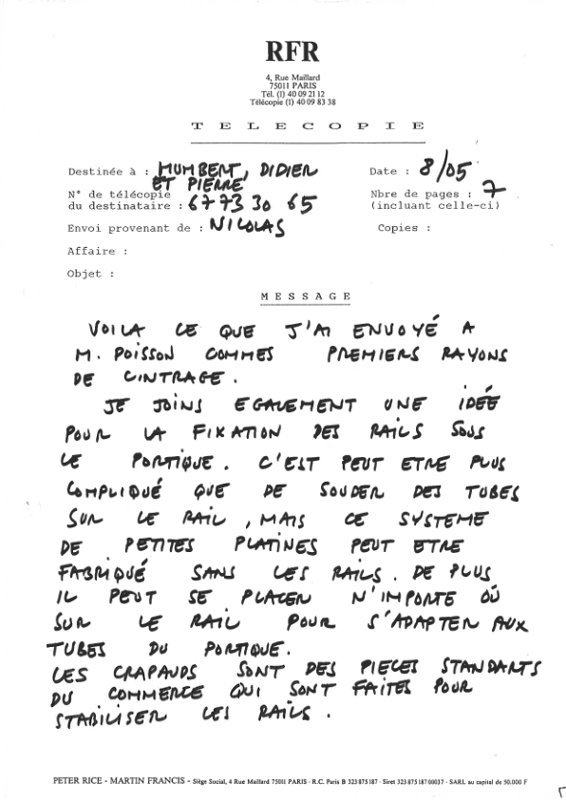 RFR
4, Rue Maillard
75011 PARIS
Tél. (1) 40 09 21 12
Télécopie (1) 40 09 83 38
TELECOPIE
Destinée à : HUMBERT, DIDIER
ET PIERRE
Date : 8/05
N° de télécopie
du destinataire : 67 73 30 65
Nbre de pages : 7
(incluant celle-ci)
Envoi provenant de : NICOLAS
Copies :
Affaire :
Objet :
MESSAGE
VOILA CE QUE J'AI ENVOYÉ A
M. POISSON COMMES PREMIERS RAYONS
DE CINTRAGE.
JE JOINS EGALEMENT UNE IDÉE
POUR LA FIXATION DES RAILS SOUS
LE PORTIQUE. C'EST PEUT ETRE PLUS
COMPLIQUÉ QUE DE SOUDER DES TUBES
SUR LE RAIL, MAIS CE SYSTEME
DE PETITES PLATINES PEUT ETRE
FABRIQUÉ SANS LES RAILS. DE PLUS
IL PEUT SE PLACER N'IMPORTE OÙ
SUR LE RAIL POUR S'ADAPTER AUX
TUBES DU PORTIQUE.
LES CRAPAUDS SONT DES PIECES STANDARTS
DU COMMERCE QUI SONT FAITES POUR
STABILISER LES RAILS.
PETER RICE - MARTIN FRANCIS - Siège Social, 4 Rue Maillard 75011 PARIS · R.C. Paris B 323 875 187 · Siret 323 875 187 00037 - SARL au capital de 50.000 F